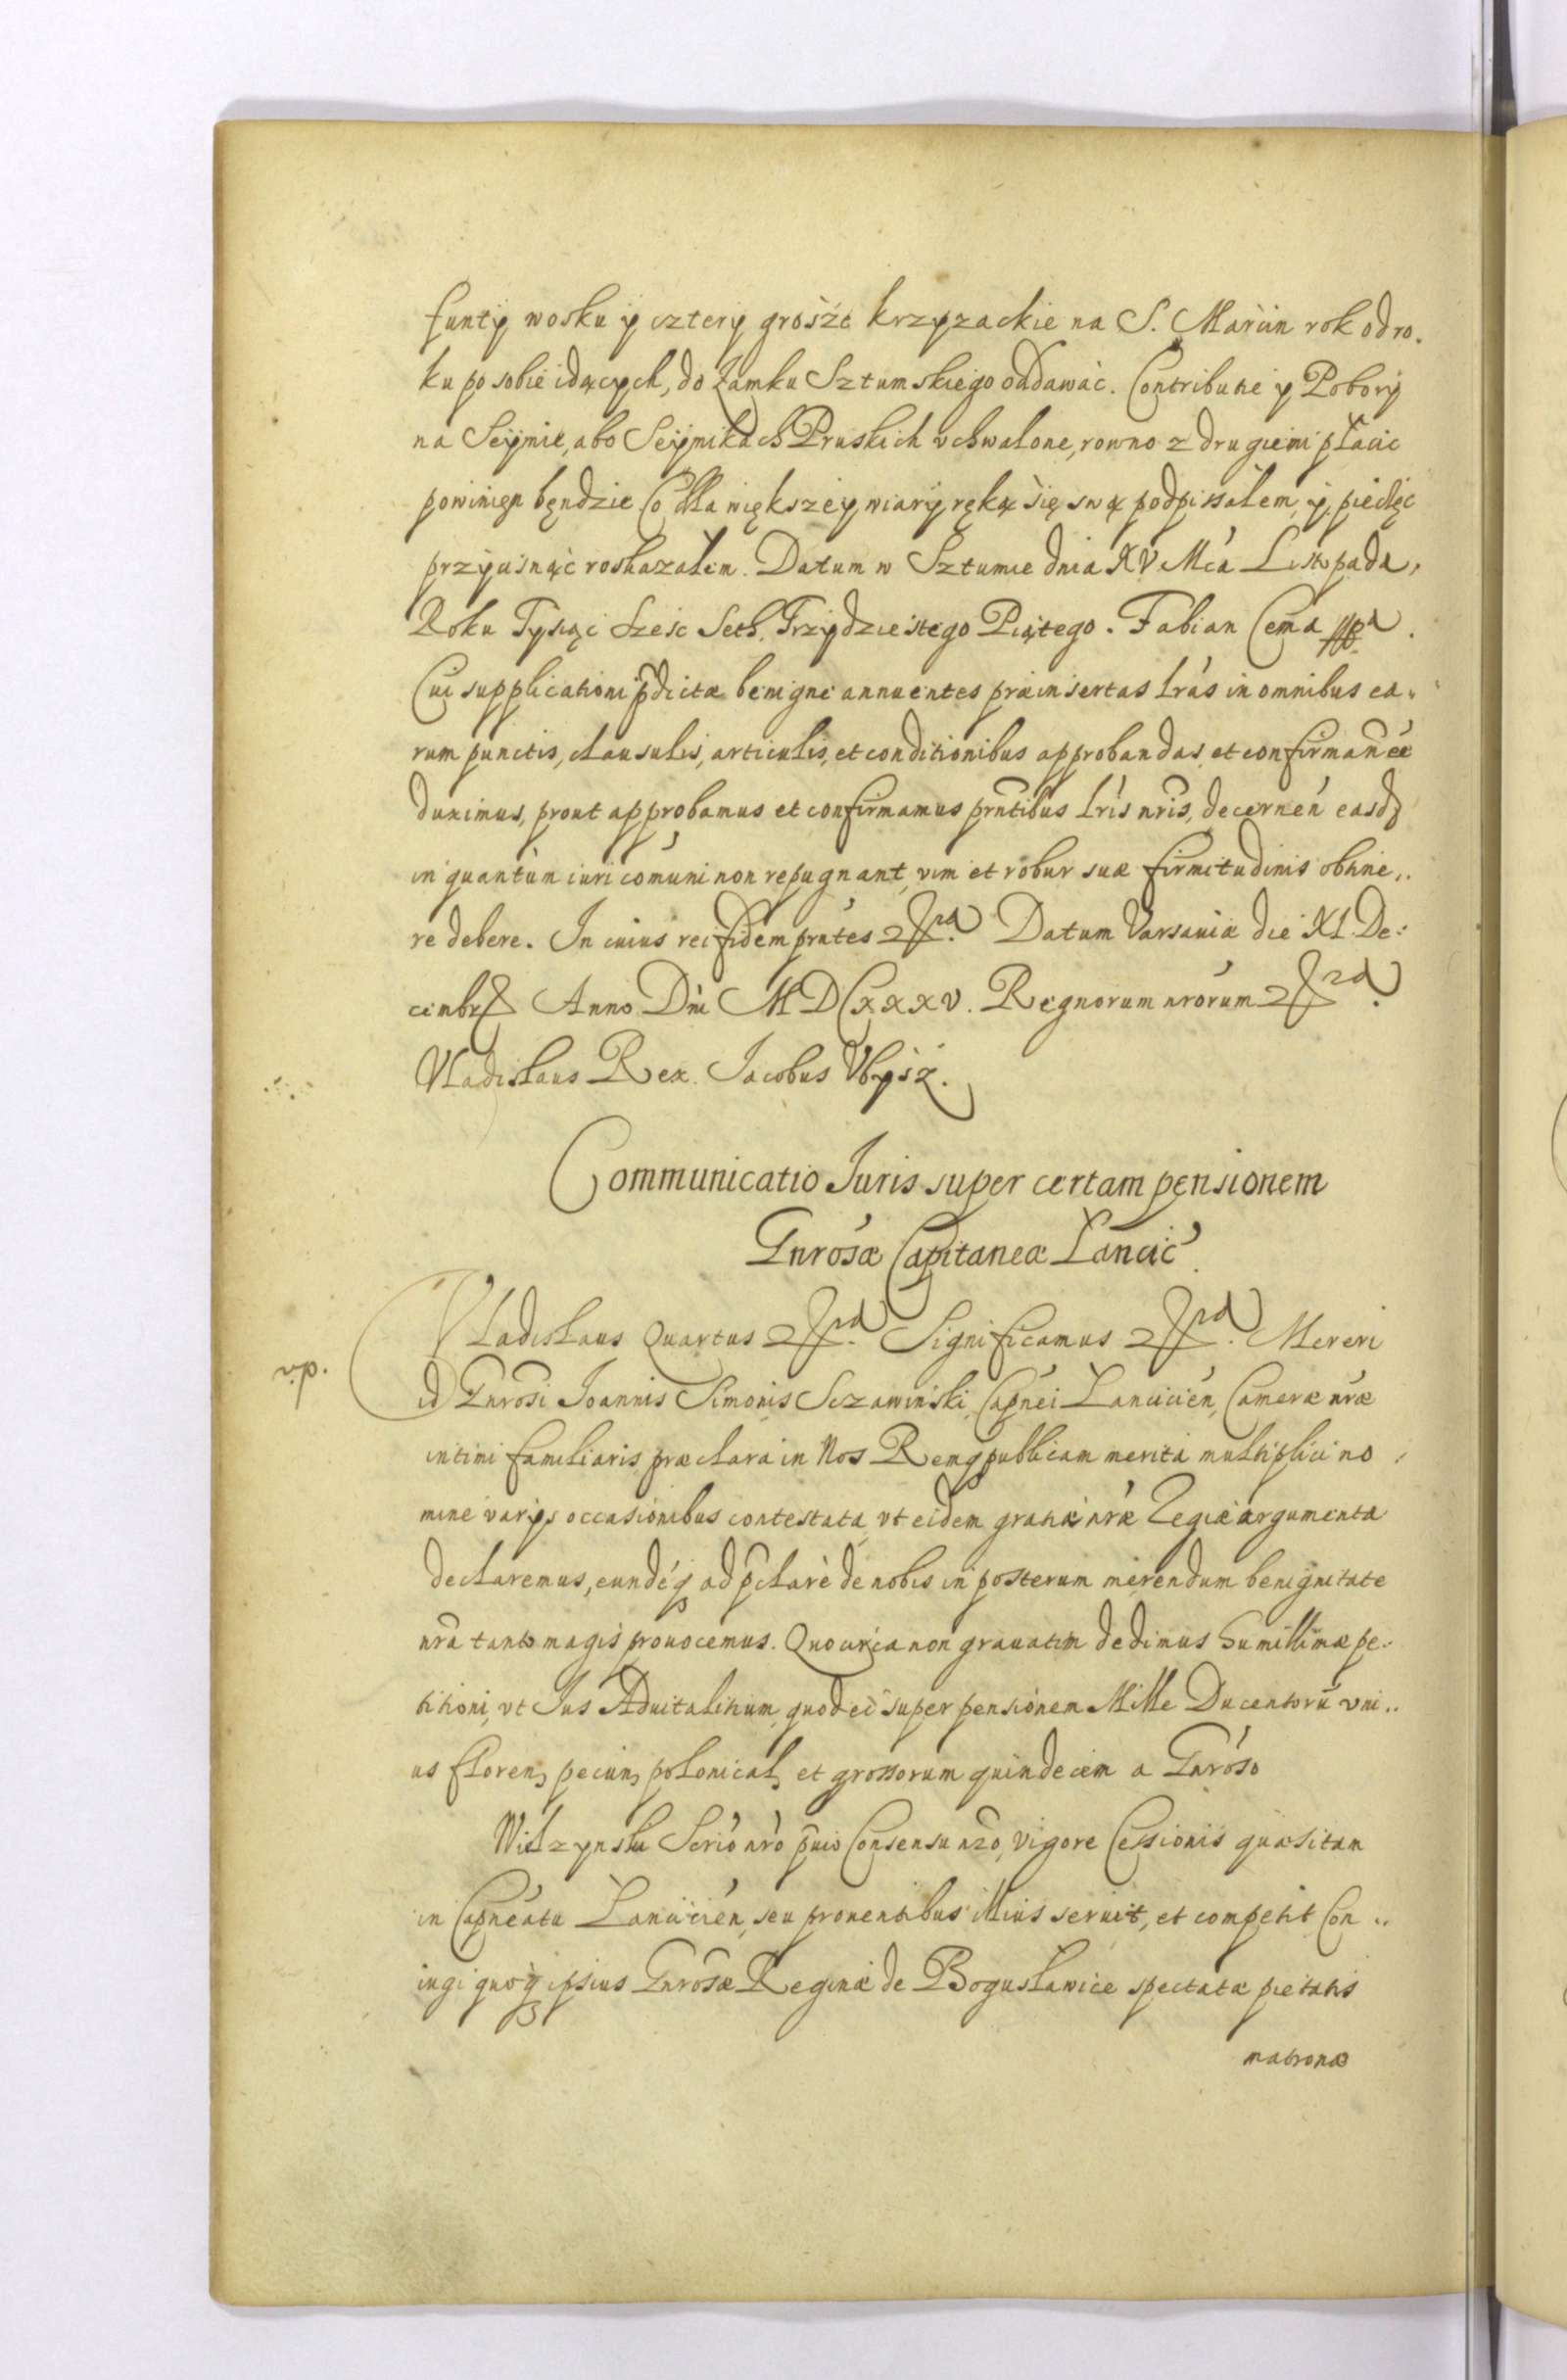 funty wosku y cztery grosze krzyzackie na S. Marcin rok od ro.
ku po sobie idących, do Zamku Sztumskiego oddawać. Contributie y Pobory
na Seymie, abo Seymikach Pruskich vchwalone, rowno z drugiemi płacic
powinien będzie Co dla większey wiary ręką się swą podpissałem, y, pieczęć
przycisnąć roskazałem. Datum w Sztumie dnia XV Mca Listopada,
Roku Tysiąc sześc Seth. Trzydziestego Piątego. Fabian Cema
Cui supplicationi pdictæ benigne annuentes præinsertas lras in omnibus ea.
rum punctis, clausulis, articulis, et conditionibus approbandas, et confirmandas
duximus, prout approbamus et confirmamus prntibus lris nris, decernen easd
in quantum iuri comuni non repugnant, vim et robur suæ firmitudinis obtine..
re debere. In cuius rei fidem prntes Datum Varsaviæ die XI De:
cembr Anno Dni MDCXXXV. Regnorum nrorum
Vladislaus Rex. Jacobus Vbysz.
Communicatio Juris super certam pensionem
Gnrosæ Capitaneæ Lancic.
Vladislaus Quartus Significamus Mereri
v.p.
id Gnrosi Joannis Simonis Sczawinski, Capnei Lancicien, Cameræ nræ
intimi familiaris præclara in Nos Remqpublicam merita multiplici no
mine varijs occasionibus contestata, vt eidem gratiæ nræ Regiæ argumenta
declaremus, eundéq ad pclarè de nobis in posterum merendum benignitate
nra tanto magis prouocemus. Quocirca non grauatim dedimus humillimæ pe.
titioni, vt Jus Aduitalitium, quod ei super pensionem Mille Ducentorũ vni..
us floren, pecun, polonical, et grossorum quindecim a Gnroso
Wilzynski Scrio nro puio Consensu nro, vigore Cessionis quæsitam
in Capneatu Lancicien, seu prouentibus illius seruit, et competit Con..
iugi quoq ipsius Gnrosæ Reginæ de Bogusławice spectatæ pietatis
matronæ